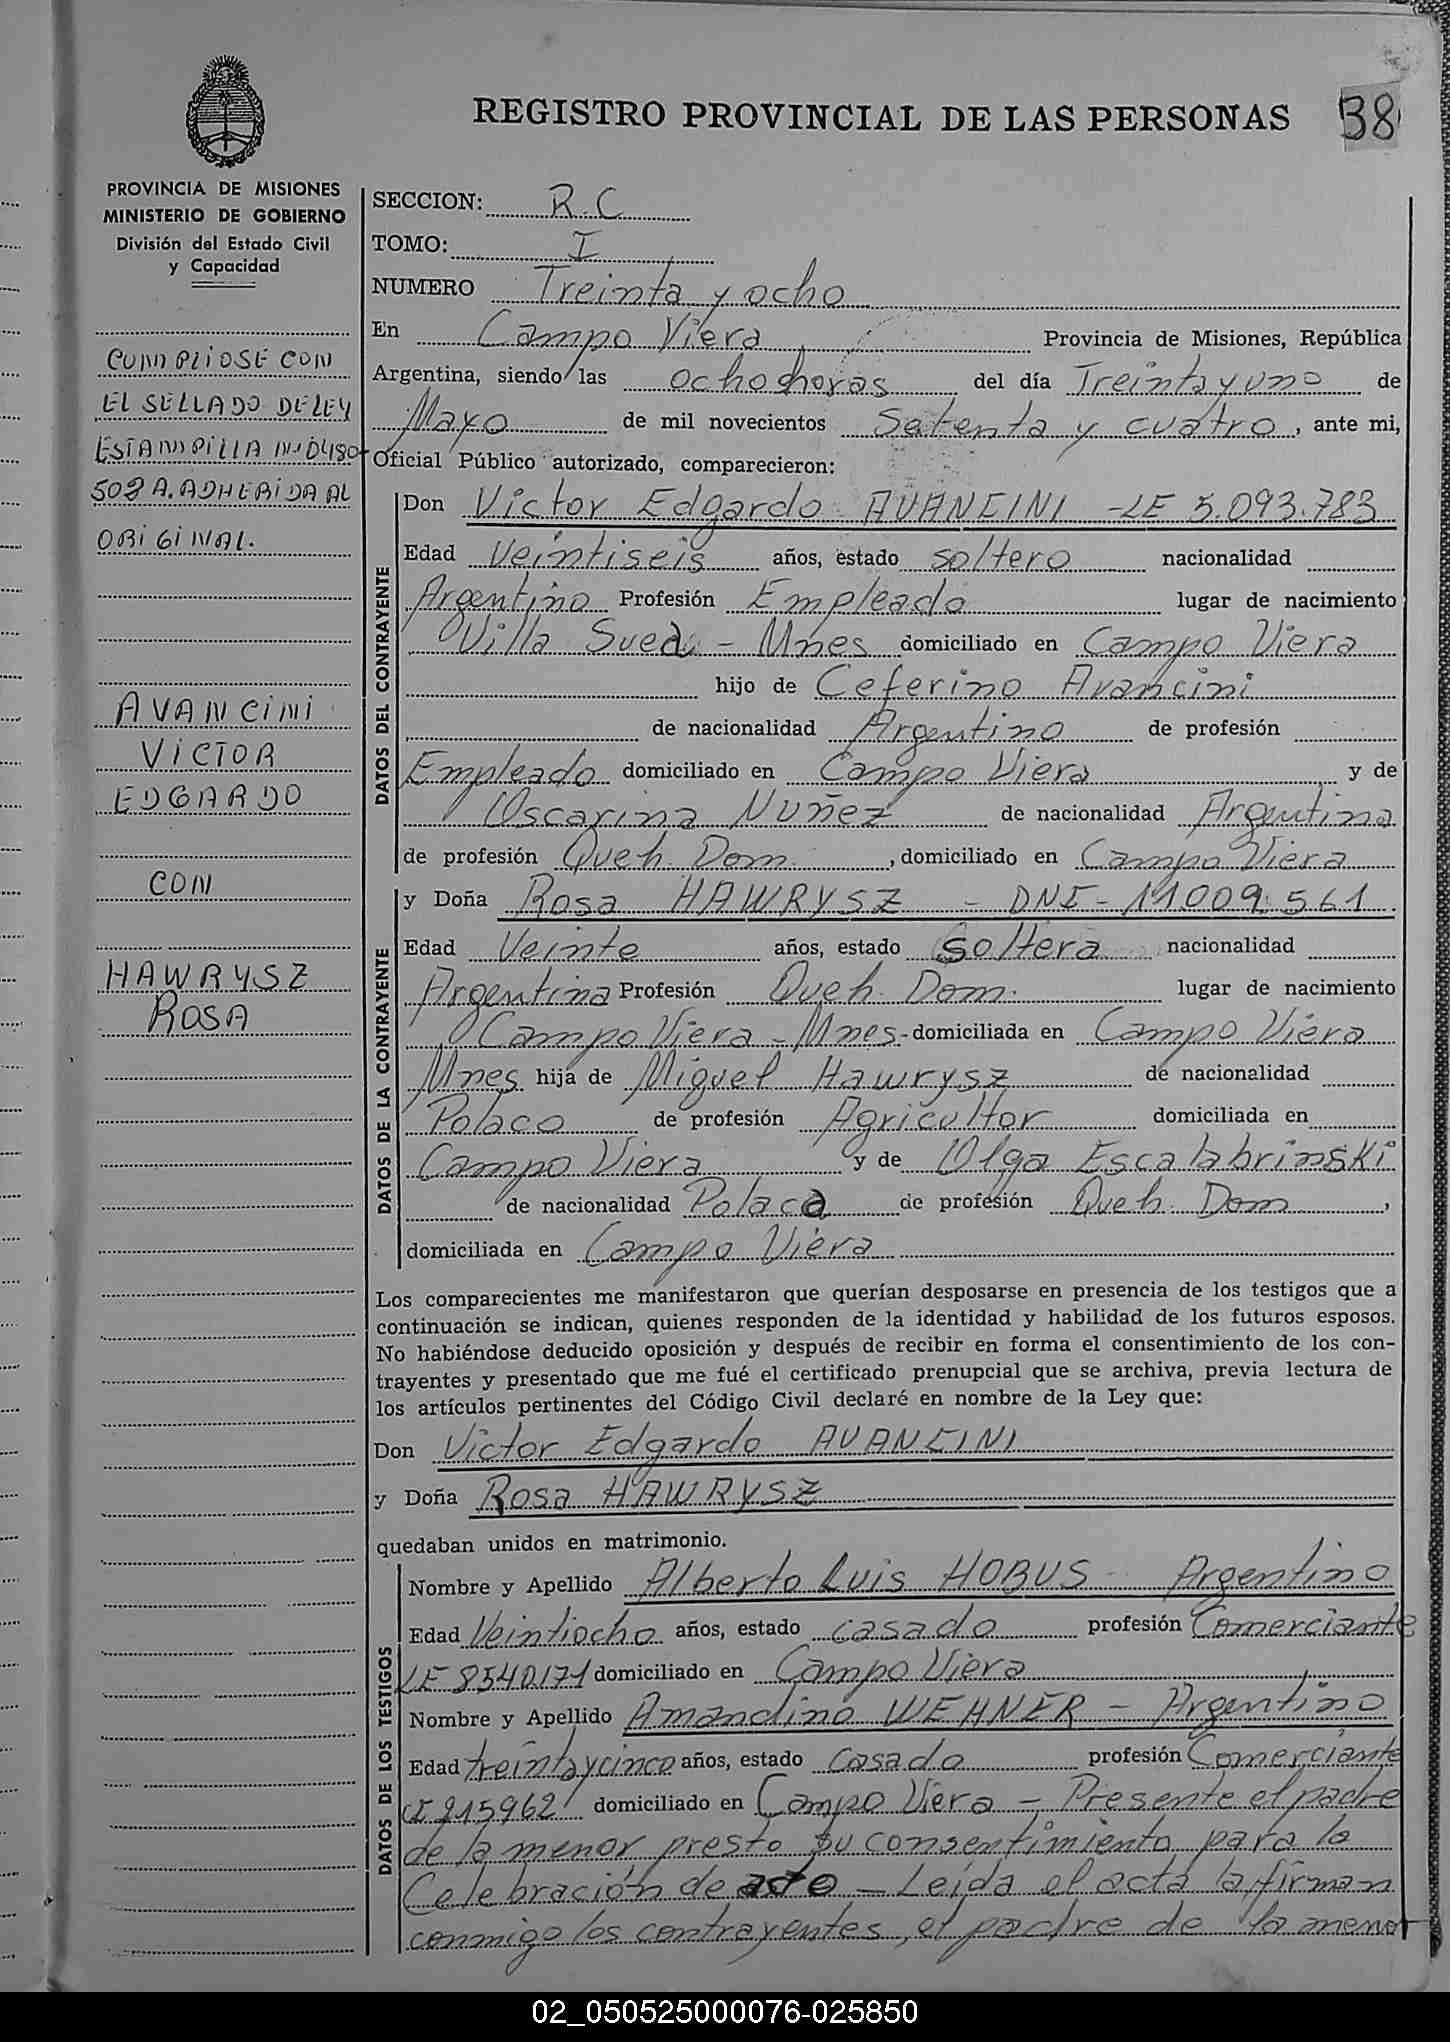 REGISTRO PROVINCIAL DE LAS PERSONAS
38
PROVINCIA DE MISIONES
MINISTERIO DE GOBIERNO
División del Estado Civil
y Capacidad
CUMPLIOSE CON
EL SELLADO DE LEY
ESTAMPILLA
508 A. ADHERIDA AL
ORIGINAL.
AVANCINI
VICTOR
EDGARDO
CON
HAWRYSZ
ROSA
SECCION: R.C
TOMO: I
NUMERO Treinta y ocho
En Campo Viera Provincia de Misiones, República
Argentina, siendo las ocho horas del día Treinta y uno de
Mayo de mil novecientos Setenta y cuatro, ante mi,
Oficial Público autorizado, comparecieron:
DATOS DEL CONTRAYENTE
Don Victor Edgardo AVANCINI - LE 5.093.783
Edad Veintiseis años, estado soltero nacionalidad
Argentino Profesión Empleado lugar de nacimiento
Villa Sueca - Mnes domiciliado en Campo Viera
hijo de Ceferino Avancini
de nacionalidad Argentino de profesión
Empleado domiciliado en Campo Viera y de
Oscarina Nuñez de nacionalidad Argentina
de profesión Queh. Dom. , domiciliado en Campo Viera
DATOS DE LA CONTRAYENTE
y Doña Rosa HAWRYSZ - DNI - 11.009.561
Edad Veinte años, estado Soltera nacionalidad
Argentina Profesión Queh. Dom. lugar de nacimiento
Campo Viera - Mnes - domiciliada en Campo Viera
Mnes hija de Miguel Hawrysz de nacionalidad
Polaco de profesión Agricultor domiciliada en
Campo Viera y de Olga Escalabrinski
de nacionalidad Polaca de profesión Queh. Dom ,
domiciliada en Campo Viera
Los comparecientes me manifestaron que querían desposarse en presencia de los testigos que a
continuación se indican, quienes responden de la identidad y habilidad de los futuros esposos.
No habiéndose deducido oposición y después de recibir en forma el consentimiento de los con-
trayentes y presentado que me fué el certificado prenupcial que se archiva, previa lectura de
los artículos pertinentes del Código Civil declaré en nombre de la Ley que:
Don Victor Edgardo AVANCINI
y Doña Rosa HAWRYSZ
quedaban unidos en matrimonio.
DATOS DE LOS TESTIGOS
Nombre y Apellido Alberto Luis HOBUS Argentino
Edad Veintiocho años, estado casado profesión Comerciante
LE 8540171 domiciliado en Campo Viera
Nombre y Apellido Amandino WEHNER - Argentino
Edad treinta y cinco años, estado Casado profesión Comerciante
CI 215962 domiciliado en Campo Viera - Presente el padre
de la menor presto su consentimiento para la
Celebración de acto - Leída el acta la firman
conmigo los contrayentes, el padre de la menor
02_050525000076-025850